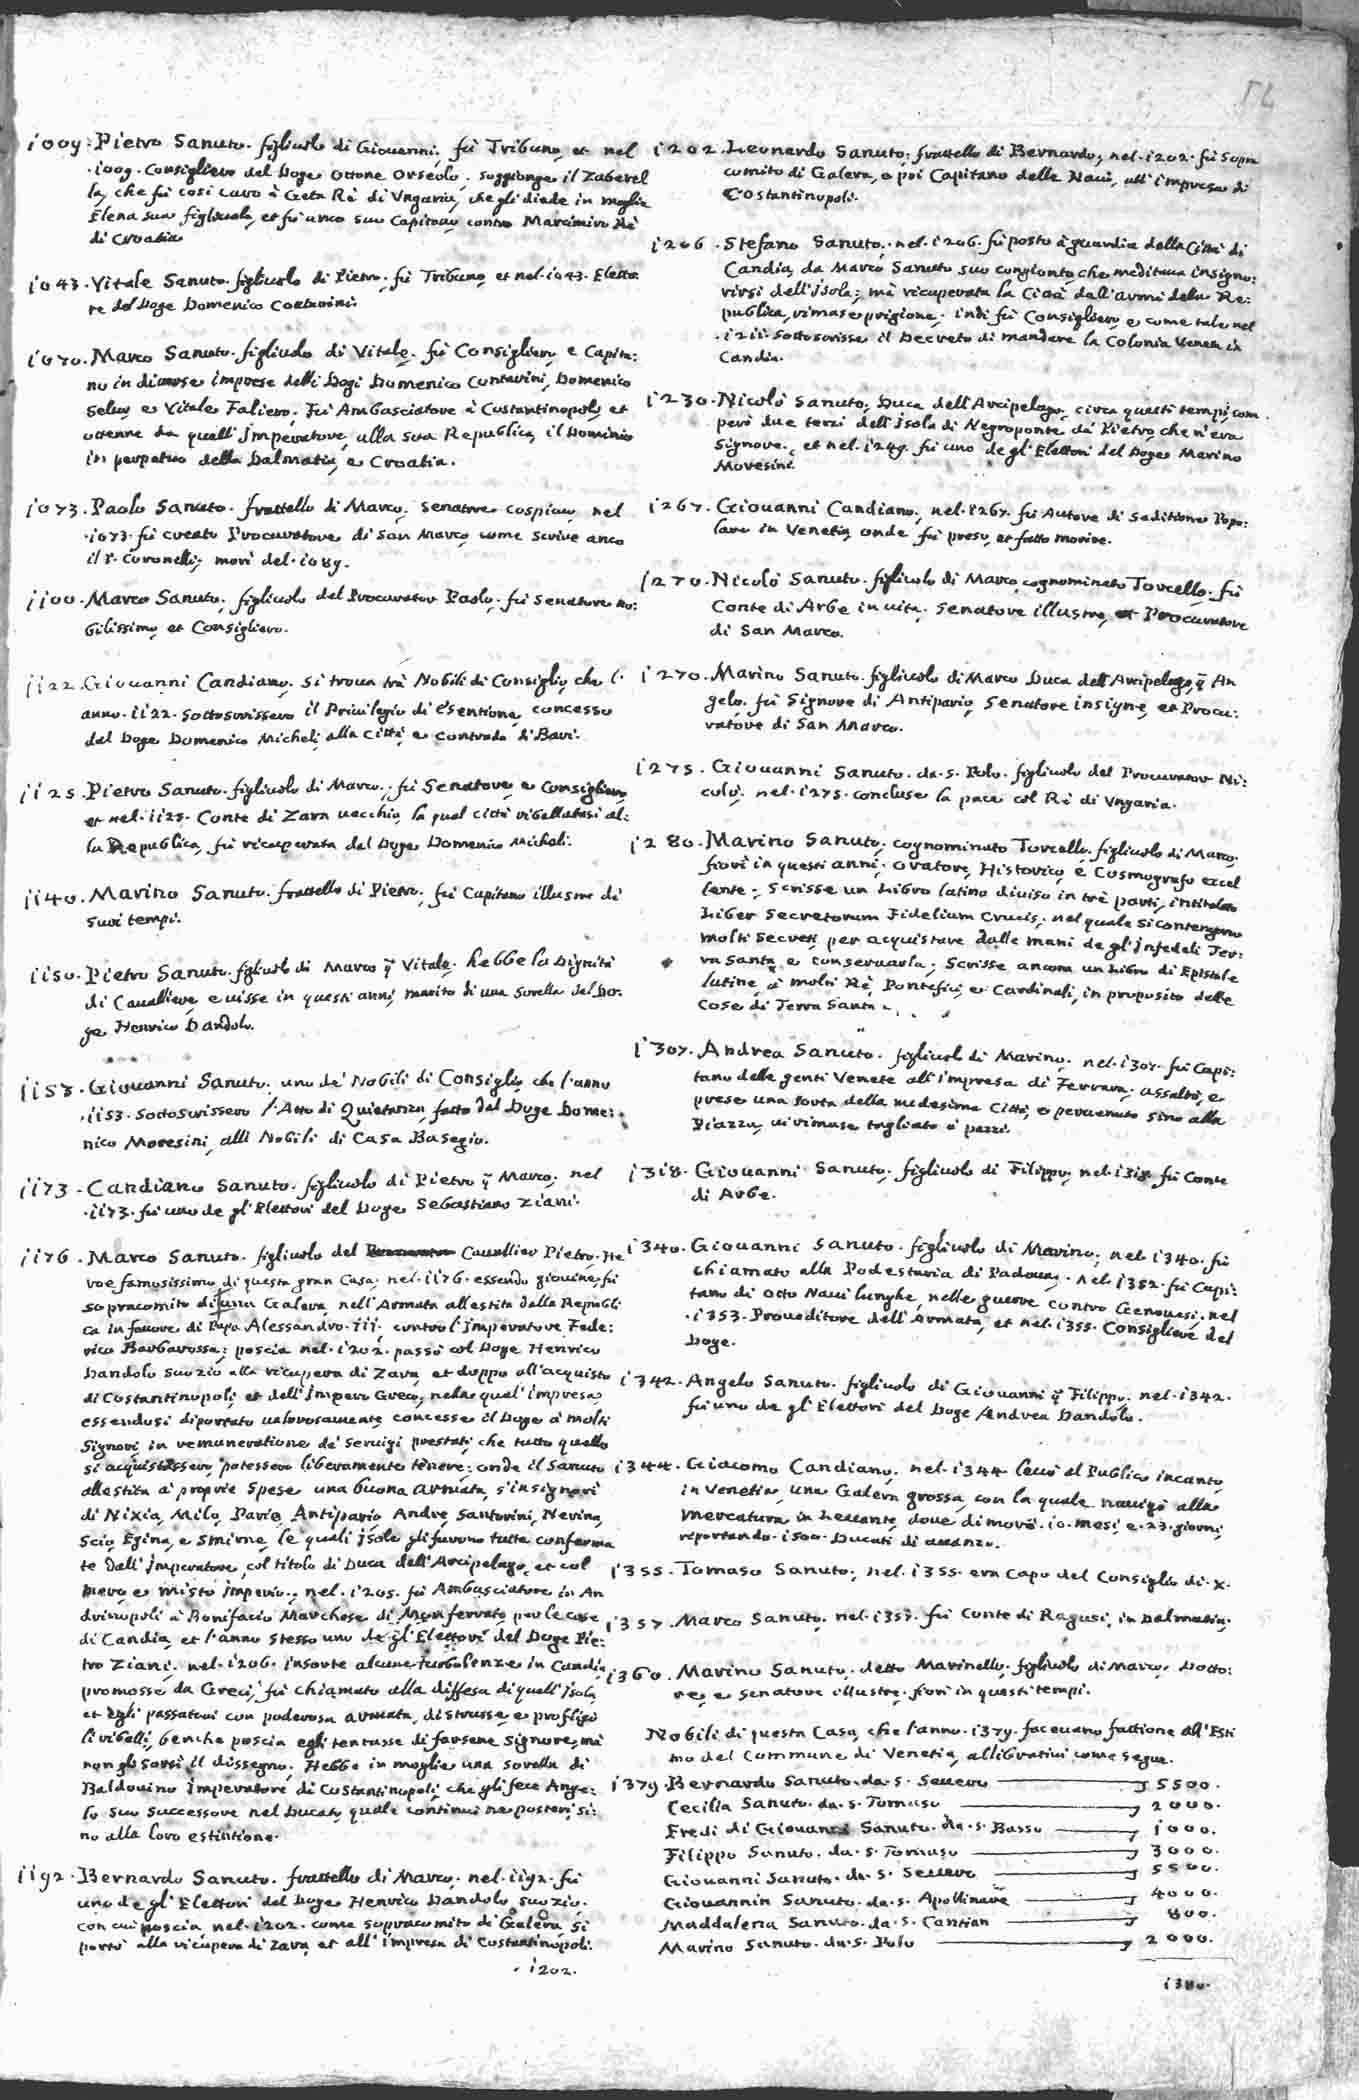 1009. Pietro Sanuto. figliuolo di Giouanni, fù Tribuno, et nel
.1009. Consigliero del Doge Ottone Orseolo. soggionge il Zaberel
la, che fù cosi caro à Geta Rè di Vngaria, che gli diede in moglie
Elena sua figliuola, et fù anco suo Capitano contro Marcimiro Rè
di Croatia
1043. Vitale Sanuto. figliuolo di Pietro, fù Tribuno, et nel .1043. Eletto
re del Doge Domenico Contarini.
1070. Marco Sanuto. figliuolo di Vitale, fù Consigliero, e Capita:
no in diuerse imprese delli Dogi Domenico Contarini, Domenico
Seluo, e Vitale Faliero. Fù Ambasciatore à Costantinopoli, et
ottenne da quell'Imperatore, alla sua Republica, il Dominio
in perpetuo della Dalmatia, e Croatia.
1073. Paolo Sanuto. frattello di Marco, Senatore cospicuo, nel
.1073. fù creato Procuratore di San Marco, come scriue anco
il P. Coronelli, morì del .1089.
1100. Marco Sanuto, figliuolo del Procurator Paolo, fù Senatore no:
bilissimo, et Consigliero.
1122. Giouanni Candiano. si troua trà Nobili di Consiglio, che l'
anno .1122. sottoscrissero il Priuilegio di esentione, concesso
dal Doge Domenico Micheli, alla Città, e Contrada di Bari.
1125. Pietro Sanuto. figliuolo di Marco, fù Senatore, e Consigliero,
et nel .1125. Conte di Zara uecchia, la qual città ribellatasi al:
la Republica, fù ricuperata dal Doge Domenico Micheli.
1140. Marino Sanuto. frattello di Pietro, fù Capitano illustre di
suoi tempi.
1150. Pietro Sanuto. figliuolo di Marco q̃ Vitale. hebbe la Dignità
di Cauallier, e uisse in questi anni, marito di una sorella del Do:
ge Henrico Dandolo.
1153. Giouanni Sanuto. uno de' Nobili di Consiglio, che l'anno
.1153. sottoscrissero l'Atto di Quietanza, fatto dal Doge Dome:
nico Moresini, alli Nobili di Casa Basegio.
1173. Candiano Sanuto. figliuolo di Pietro q̃ Marco, nel
.1173. fù uno de gl'Elettori del Doge Sebastiano Ziani.
1176. Marco Sanuto. figliuolo del Cauallier Pietro, He
roe famosissimo di questa gran Casa, nel .1176. essendo giouine, fù
sopracomito di una Galera, nell'Armata allestita dalla Republi
ca in fauore di Papa Alessandro .III. contro l'Imperatore Fede:
rico Barbarossa; poscia nel .1202. passò col Doge Henrico
Dandolo suo zio alla ricupera di Zara, et doppo all'acquisto
di Costantinopoli, et dell'Impero Greco, nella qual'impresa,
essendosi diportato ualorosamente, concesse il Doge à molti
Signori, in remuneratione de' seruigi prestati, che tutto quello
si acquistassero, potessero liberamente tenere: onde il Sanuto
allestita à proprie spese una buona armata, s'insignorì
di Nixia, Milo, Pario, Antipario, Andre, Santorini, Nerina,
Scio, Egina, e Smirne, le quali Isole gli furono tutte conferma
te dall'Imperatore, col titolo di Duca dell'Arcipelago, et col
mero, e misto imperio, nel .1205. fù Ambasciatore in An
drinopoli à Bonifacio Marchese di Monferrato per le cose
di Candia, et l'anno stesso uno de gl'Elettori del Doge Pie:
tro Ziani. nel .1206. insorte alcune turbolenze in Candia,
promosse da Greci, fù chiamato alla diffesa di quell'Isola,
et egli passatoui con poderosa armata, distrusse, e profligò
li ribelli, benche poscia egli tentasse di farsene Signore, mà
non gli sortì il dissegno. Hebbe in moglie una sorella di
Baldouino Imperatore di Costantinopoli, che gli fece Ange:
lo suo successore nel Ducato, quale continuò ne posteri, si:
no alla loro estintione.
1192. Bernardo Sanuto. frattello di Marco. nel .1192. fù
uno de gl'Elettori del Doge Henrico Dandolo, suo zio.
con cui poscia, nel .1202. come sopracomito di Galera, si
portò alla ricupera di Zara, et all'impresa di Costantinopoli.
.1202.
1202. Leonardo Sanuto, frattello di Bernardo, nel .1202. fù sopra
comito di Galera, e poi Capitano delle Naui, all'impresa di
Costantinopoli.
1206. Stefano Sanuto, nel .1206. fù posto à guardia della Città di
Candia, da Marco Sanuto suo congionto, che meditaua insigno:
rirsi dell'Isola; mà ricuperata la Città dall'armi della Re:
publica, rimase prigione. indi fù Consigliero, e come tale nel
.1211. sottoscrisse il Decreto di mandare la Colonia Veneta in
Candia.
1230. Nicolò Sanuto, Duca dell'Arcipelago, circa questi tempi, com
però due terzi dell'Isola di Negroponte da Pietro, che n'era
Signore. et nel .1249. fù uno de gl'Elettori del Doge Marino
Moresini.
1267. Giouanni Candiano, nel .1267. fù Autore di seditione Popo:
lare in Venetia, onde fù preso, et fatto morire.
1270. Nicolò Sanuto. figliuolo di Marco, cognominato Torcello, fù
Conte di Arbe in uita, Senatore illustre, et Procuratore
di San Marco.
1270. Marino Sanuto. figliuolo di Marco Duca dell'Arcipelago, q̃ An
gelo. fù Signore di Antipario, Senatore insigne, et Procu:
ratore di San Marco.
1275. Giouanni Sanuto. da .S. Polo. figliuolo del Procurator Ni:
colò. nel .1275. concluse la pace col Rè di Vngaria.
1280. Marino Sanuto, cognominato Torcello. figliuolo di Marco,
fiorì in questi anni, Oratore, Historico, e Cosmografo excel
lente. Scrisse un Libro latino diuiso in trè parti, intitolato
Liber Secretorum Fidelium Crucis, nel quale si contengono
molti secreti, per acquistare dalle mani de gl'Infedeli Ter:
ra santa, e conseruarla. Scrisse ancora un Libro di Epistole
latine, à molti Rè, Pontefici, et Cardinali, in proposito delle
cose di Terra Santa.
1307. Andrea Sanuto. figliuolo di Marino, nel .1307. fù Capi:
tano delle genti Venete all'impresa di Ferrara, assaltò, e
prese una porta della medesima Città, e peruenuto sino alla
Piazza, ui rimase tagliato à pezzi.
1318. Giouanni Sanuto, figliuolo di Filippo, nel .1318. fù Conte
di Arbe.
1340. Giouanni Sanuto. figliuolo di Marino, nel .1340. fù
chiamato alla Podestaria di Padoua, nel .1352. fù Capi:
tano di otto Naui lunghe, nelle guerre contro Genouesi, nel
.1353. Proueditore dell'Armata, et nel .1355. Consigliere del
Doge.
1342. Angelo Sanuto. figliuolo di Giouanni q̃ Filippo, nel .1342.
fù uno de gl'Elettori del Doge Andrea Dandolo.
1344. Giacomo Candiano, nel .1344 leuò al Publico incanto,
in Venetia, una Galera grossa, con la quale nauigò alla
mercatura in Leuante, doue dimorò .10. mesi, e .23. giorni,
reportando .1500. Ducati di auanzo.
1355. Tomaso Sanuto, nel .1355. era Capo del Consiglio di .X.
1357. Marco Sanuto, nel .1357. fù Conte di Ragusi, in Dalmatia.
1360. Marino Sanuto, detto Marinello, figliuolo di Marco, Dotto:
re, e Senatore illustre, fiorì in questi tempi.
Nobili di questa Casa, che l'anno .1379. faceuano fattione all'Esti
mo del Commune di Venetia, allibrati come segue.
1379. Bernardo Sanuto. da .S. Seuero 5500.
Cecilia Sanuto. da .S. Tomaso 2000.
Eredi di Giouanni Sanuto. da .S. Basso 1000.
Filippo Sanuto. da .S. Tomaso 3000.
Giouanni Sanuto. da .S. Seuero 5500.
Giouannin Sanuto. da .S. Apollinare 4000.
Maddalena Sanuto. da .S. Cantian 800.
Marino Sanuto. da .S. Polo 2000.
1380.